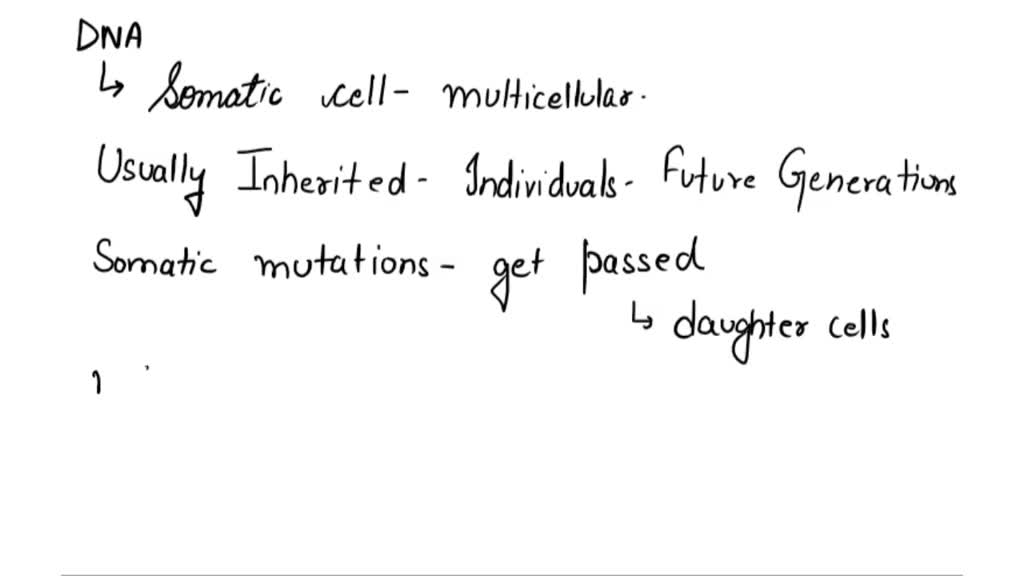 DNA
↳ Somatic cell - multicellular.
Usually Inherited - Individuals - Future Generations
Somatic mutations - get passed
↳ daughter cells